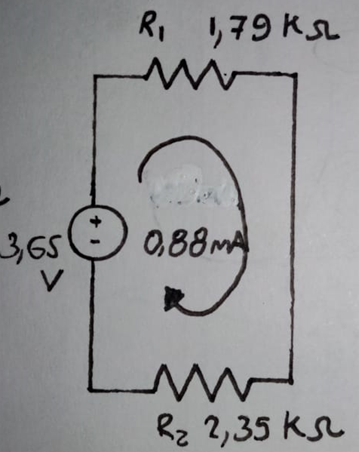 R₁ 1,79 KΩ
+
-
3,65
V
0,88mA
R₂ 2,35 KΩ